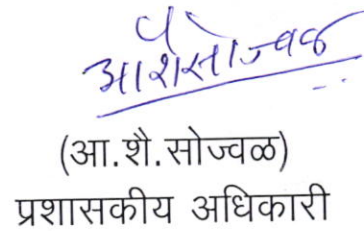 आशैसोज्वळ
(आ.शै.सोज्वळ)
प्रशासकीय अधिकारी